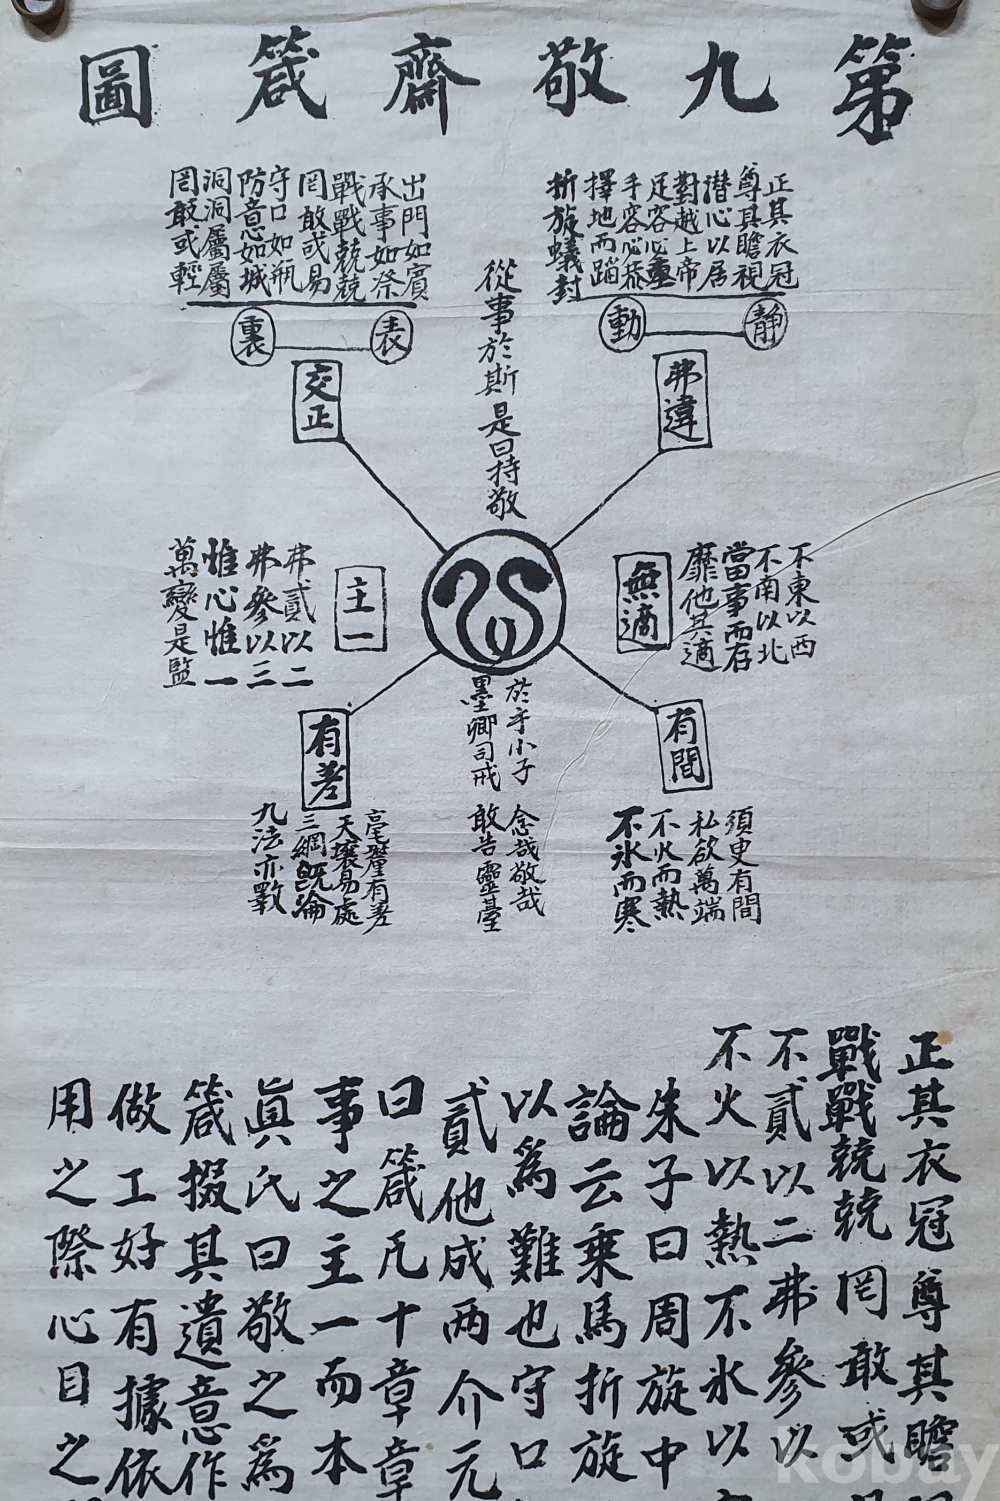 第九敬齋箴圖
正其衣冠
尊其瞻視
潜心以居
對越上帝
足容必重
手容必恭
擇地而蹈
折旋蟻封
靜
動
弗違
出門如賓
承事如祭
戰戰兢兢
罔敢或易
守口如瓶
防意如城
洞洞屬屬
罔敢或輕
表
裏
交正
從事於斯是曰持敬
心
不東以西
不南以北
當事而存
靡他其適
無適
主一
弗貳以二
弗參以三
惟心惟一
萬變是監
有間
須臾有間
私欲萬端
不火而熱
不氷而寒
有差
毫釐有差
天壤易處
三綱旣淪
九法亦斁
於乎小子 念哉敬哉
墨卿司戒 敢告靈臺
正其衣冠尊其瞻
戰戰兢兢罔敢或
不貳以二弗參以
不火以熱不氷以
朱子曰周旋中
論云乗馬折旋
以爲難也守口
貳他成两介元
曰箴凡十章章
事之主一而本
眞氏曰敬之爲
箴掇其遺意作
做工好有據依
用之際心目之
kobay